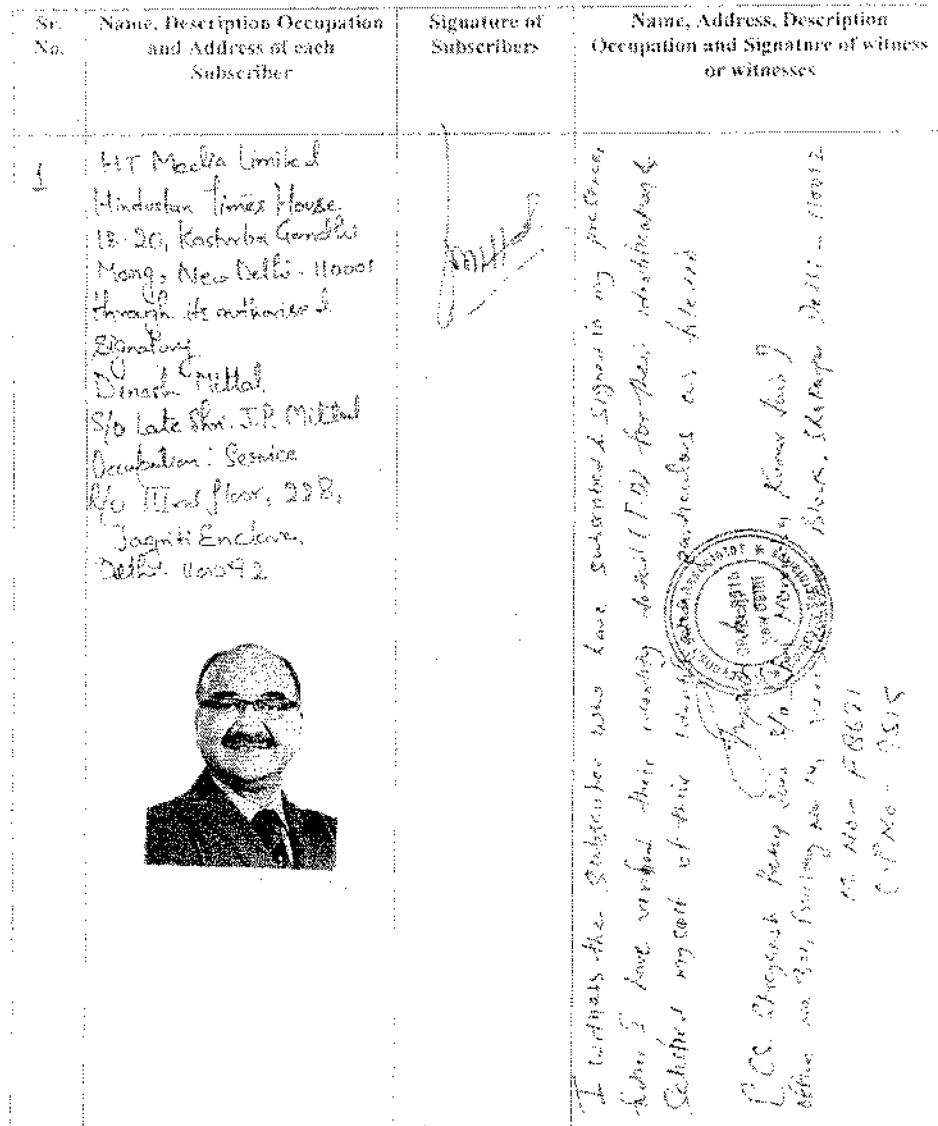 Sr. No.
Name, Description Occupation and Address of each Subscriber
Signature of Subscribers
Name, Address, Description Occupation and Signature of witness or witnesses
1
HT Media Limited
Hindustan Times House
18-20, Kasturba Gandhi
Marg, New Delhi - 110001
through its authorised
Signatory
Dinesh Mittal
S/o Late Shri. J.P. Mittal
Occupation: Service
R/o IIIrd floor, 228,
Jagriti Enclave,
Delhi. 110092
I witness the Subscriber who have subscribed & signed in my presence,
further I have verified their identity detail (I.D) for their identification &
satisfied myself of their identification particulars as filled
CS. Kumar Jain
Office no Block, Shakarpur Delhi - 110092
M. No- F8671
C.P No- 9515